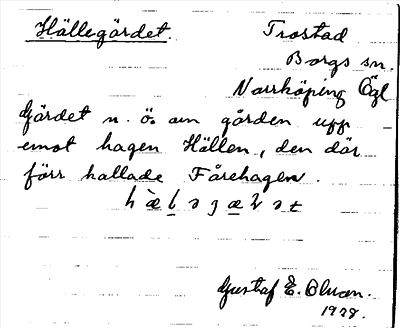 Hällegärdet. Trostad
Borgs sn.
Norrköping Ögl
Gärdet n. ö. om gården upp
emot hagen Hällen, den där
förr kallade Fårehagen.
Gustaf E. Olsson.
1928.